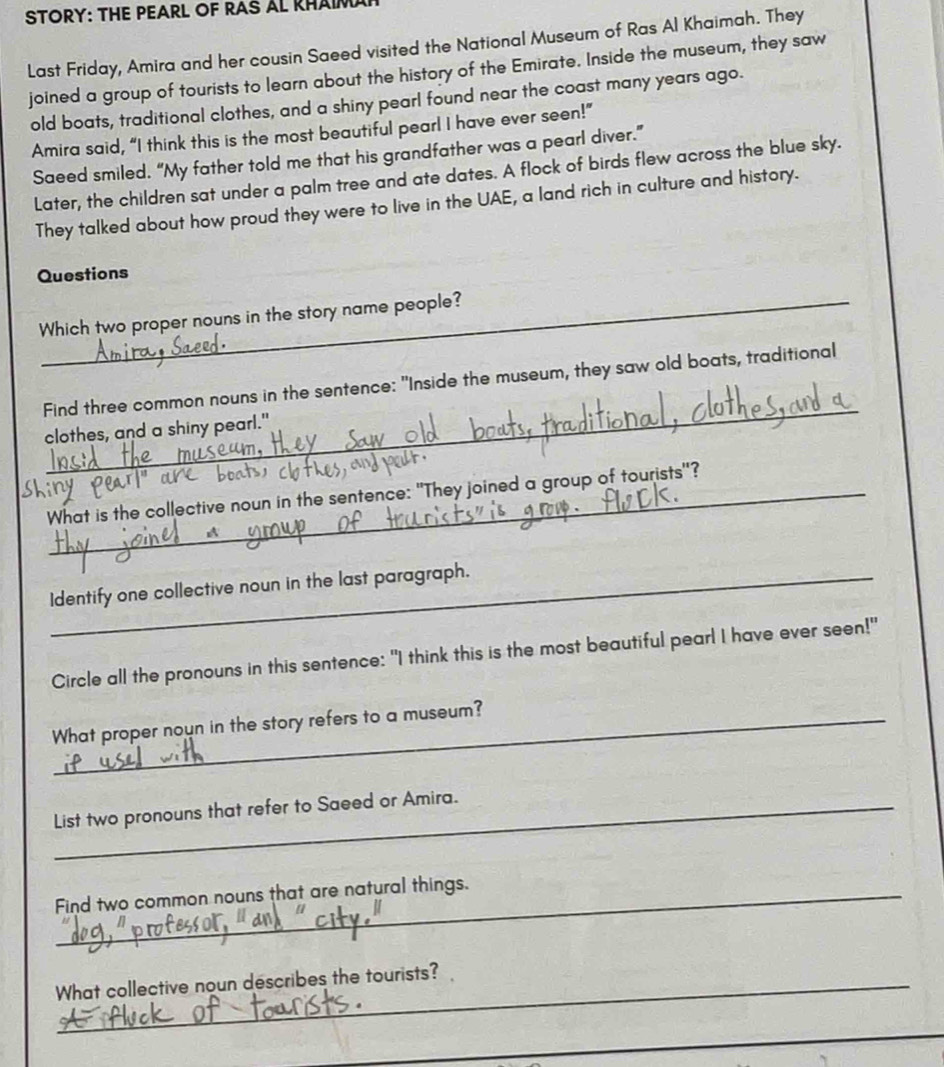 STORY: THE PEARL OF RAS AL KHAIMAH
Last Friday, Amira and her cousin Saeed visited the National Museum of Ras Al Khaimah. They
joined a group of tourists to learn about the history of the Emirate. Inside the museum, they saw
old boats, traditional clothes, and a shiny pearl found near the coast many years ago.
Amira said, "I think this is the most beautiful pearl I have ever seen!"
Saeed smiled. "My father told me that his grandfather was a pearl diver."
Later, the children sat under a palm tree and ate dates. A flock of birds flew across the blue sky.
They talked about how proud they were to live in the UAE, a land rich in culture and history.
Questions
Which two proper nouns in the story name people?
Amira, Saeed.
Find three common nouns in the sentence: "Inside the museum, they saw old boats, traditional
clothes, and a shiny pearl."
Insid the museum, they saw old boats, traditional, clothes, and a
shiny pearl" are boats, clothes, and
What is the collective noun in the sentence: "They joined a group of tourists"?
thy joined a group of tourists" is group. flock.
Identify one collective noun in the last paragraph.
Circle all the pronouns in this sentence: "I think this is the most beautiful pearl I have ever seen!"
What proper noun in the story refers to a museum?
if used with
List two pronouns that refer to Saeed or Amira.
Find two common nouns that are natural things.
"dog," "professor," and "city."
What collective noun describes the tourists?
fluck of tourists.